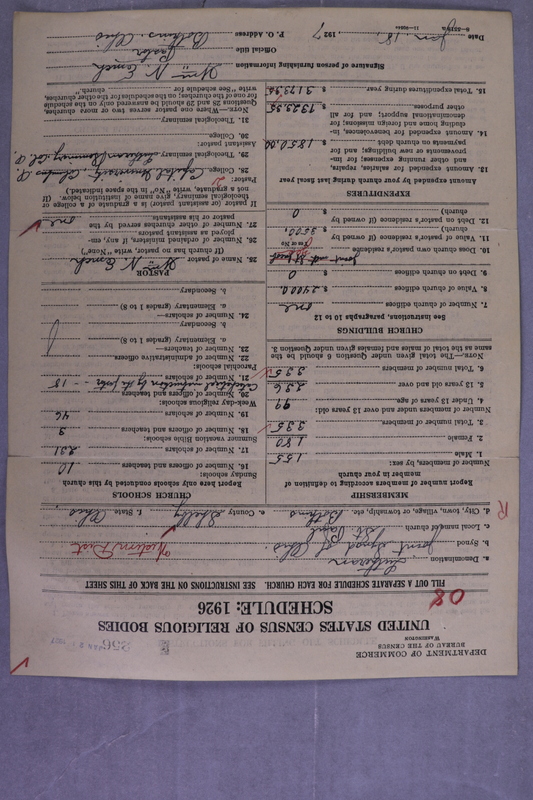 DEPARTMENT OF COMMERCE
BUREAU OF THE CENSUS
WASHINGTON
256
UNITED STATES CENSUS OF RELIGIOUS BODIES
SCHEDULE: 1926
80
FILL OUT A SEPARATE SCHEDULE FOR EACH CHURCH. SEE INSTRUCTIONS ON THE BACK OF THIS SHEET
a. Denomination Lutheran
b. Synod Joint Synod of Ohio Western Dist
c. Local name of church St. Paul
d. City, town, village, or township, etc. Botkins e. County Shelby f. State Ohio
R
MEMBERSHIP
Report number of members according to definition of member in your church
Number of members, by sex:
1. Male 155
2. Female 180
3. Total number of members. 335
Number of members under and over 13 years old:
4. Under 13 years of age. 99
5. 13 years old and over 236
6. Total number of members 335
NOTE.—The total given under Question 6 should be the same as the total of males and females given under Question 3.
CHURCH BUILDINGS
See instructions, paragraphs 10 to 12
7. Number of church edifices one
8. Value of church edifices $
9. Debt on church edifices $ 0
10. Does church own pastor's residence
11. Value of pastor's residence (if owned by church) $ 3500.
12. Debt on pastor's residence (if owned by church) $ 0
EXPENDITURES
Amount expended by your church during last fiscal year
13. Amount expended for salaries, repairs, and other running expenses; for improvements or new buildings, and for payments on church debt $ 1850.00
14. Amount expended for benevolences, including home and foreign missions; for denominational support; and for all other purposes. $
15. Total expenditures during year. $
CHURCH SCHOOLS
Report here only schools conducted by this church
Sunday schools:
16. Number of officers and teachers 10
17. Number of scholars 231
Summer vacation Bible schools:
18. Number of officers and teachers 3
19. Number of scholars 46
Week-day religious schools:
20. Number of officers and teachers
Catechetical instruction by the pastor
21. Number of scholars 15
Parochial schools:
22. Number of administrative officers
23. Number of teachers—
a. Elementary (grades 1 to 8)
b. Secondary
24. Number of scholars—
a. Elementary (grades 1 to 8)
b. Secondary
PASTOR
25. Name of pastor Wm. N. Emch
(If church has no pastor write "None")
26. Number of ordained ministers, if any, employed as assistant pastors
27. Number of other churches served by the pastor or his assistants. one
If pastor (or assistant pastor) is a graduate of a college or theological seminary, give name of institution below. (If not a graduate, write "No" in the space indicated.)
Pastor:
28. College. Capital University, Columbus O.
29. Theological seminary.
Assistant pastor:
30. College.
31. Theological seminary
NOTE.—Where one pastor serves two or more churches, Questions 25 and 29 should be answered only on the schedule for one of the churches; on the schedules for the other churches, write "See schedule for church."
Signature of person furnishing information Wm. N. Emch
Official title Pastor
P. O. Address Botkins, Ohio
Date Jan. 18, 1927